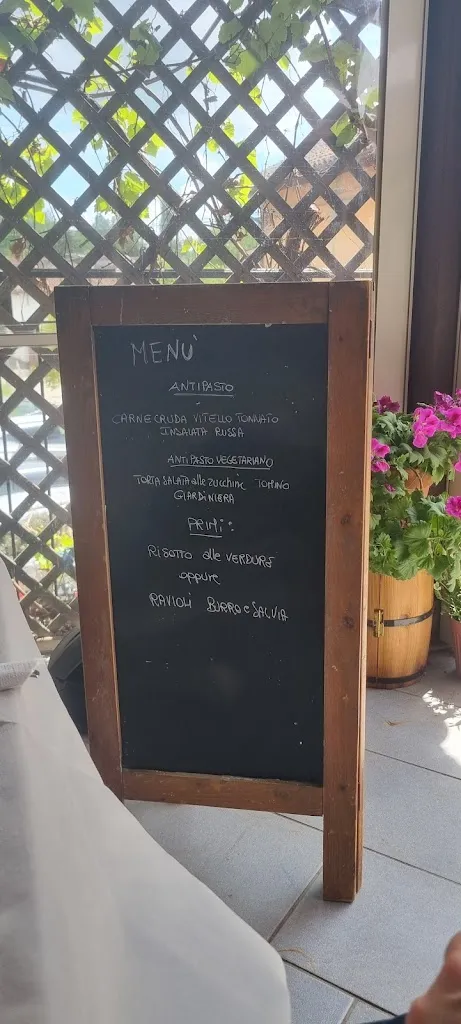 MENÙ
ANTIPASTO
CARNE CRUDA VITELLO TONNATO
INSALATA RUSSA
ANTIPASTO VEGETARIANO
TORTA SALATA alle zucchine TOMINO
GIARDINIERA
PRIMI:
RISOTTO alle VERDURE
oppure
RAVIOLI BURRO e SALVIA